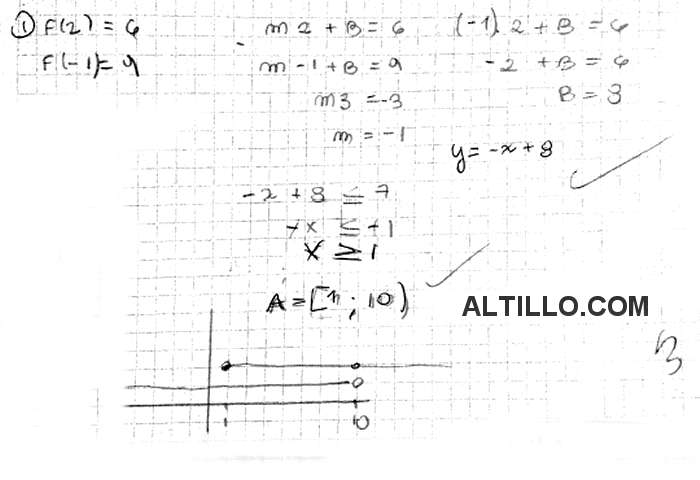 ① F(2) = 6
F(-1) = 9
m 2 + B = 6
m -1 + B = 9
m3 = -3
m = -1
(-1) 2 + B = 6
-2 + B = 6
B = 8
y = -x + 8
-x + 8 ≤ 7
-x ≤ -1
x ≥ 1
A = [1 ; 10)
ALTILLO.COM
3
1 10